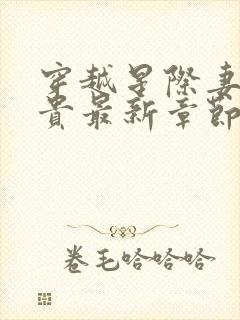 穿越星际妻
贵最新章节
卷毛哈哈哈